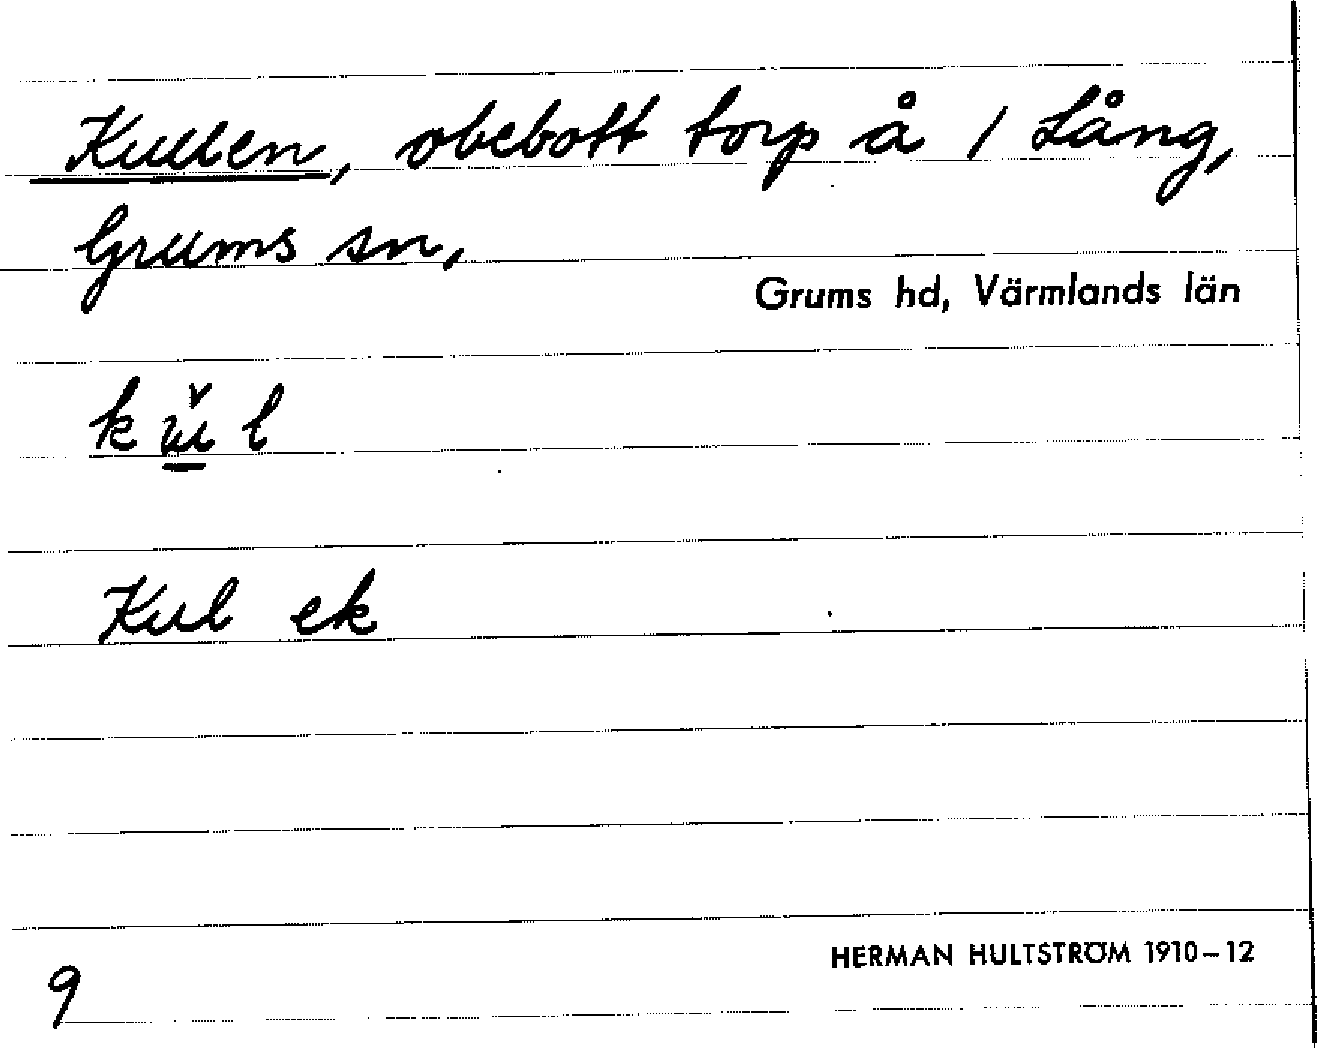 Kullen, obebott torp å 1 Lång,
Grums sn,
Grums hd, Värmlands län
Kul ek
HERMAN HULTSTRÖM 1910–12
9